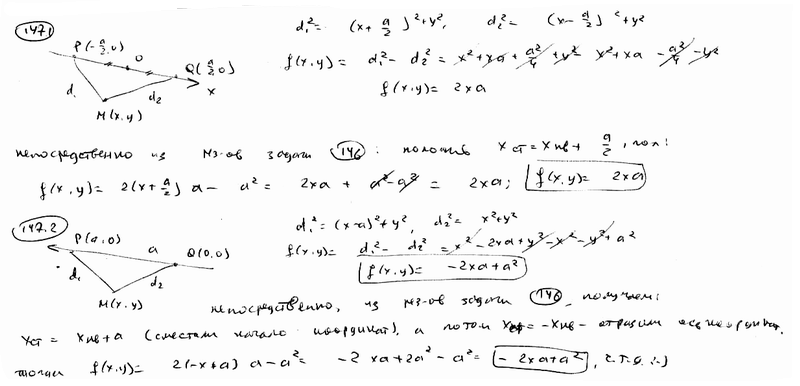 147.1
P(-a/2, 0) O Q(a/2, 0) x
d₁ d₂
M(x,y)
d₁² = (x + a/2)² + y², d₂² = (x - a/2)² + y²
f(x,y) = d₁² - d₂² = x² + xa + a²/4 + y² - x² + xa - a²/4 - y²
f(x,y) = 2xa
непосредственно из рез-ов задачи 146 : положить Xст = Xнв + a/2, пол:
f(x,y) = 2(x + a/2) a - a² = 2xa + a² - a² = 2xa; f(x,y) = 2xa
147.2
P(a,0) a Q(0,0)
d₁ d₂
M(x,y)
d₁² = (x-a)² + y², d₂² = x² + y²
f(x,y) = d₁² - d₂² = x² - 2xa + y² - x² - y² + a²
f(x,y) = -2xa + a²
непосредственно, из рез-ов задачи 146, получаем:
Xст = Xнв + a (сместили начало координат), а потом Xст = -Xнв - отразим ось координат,
тогда f(x,y) = 2(-x+a) a - a² = -2xa + 2a² - a² = -2xa + a², ч.т.д. :-)